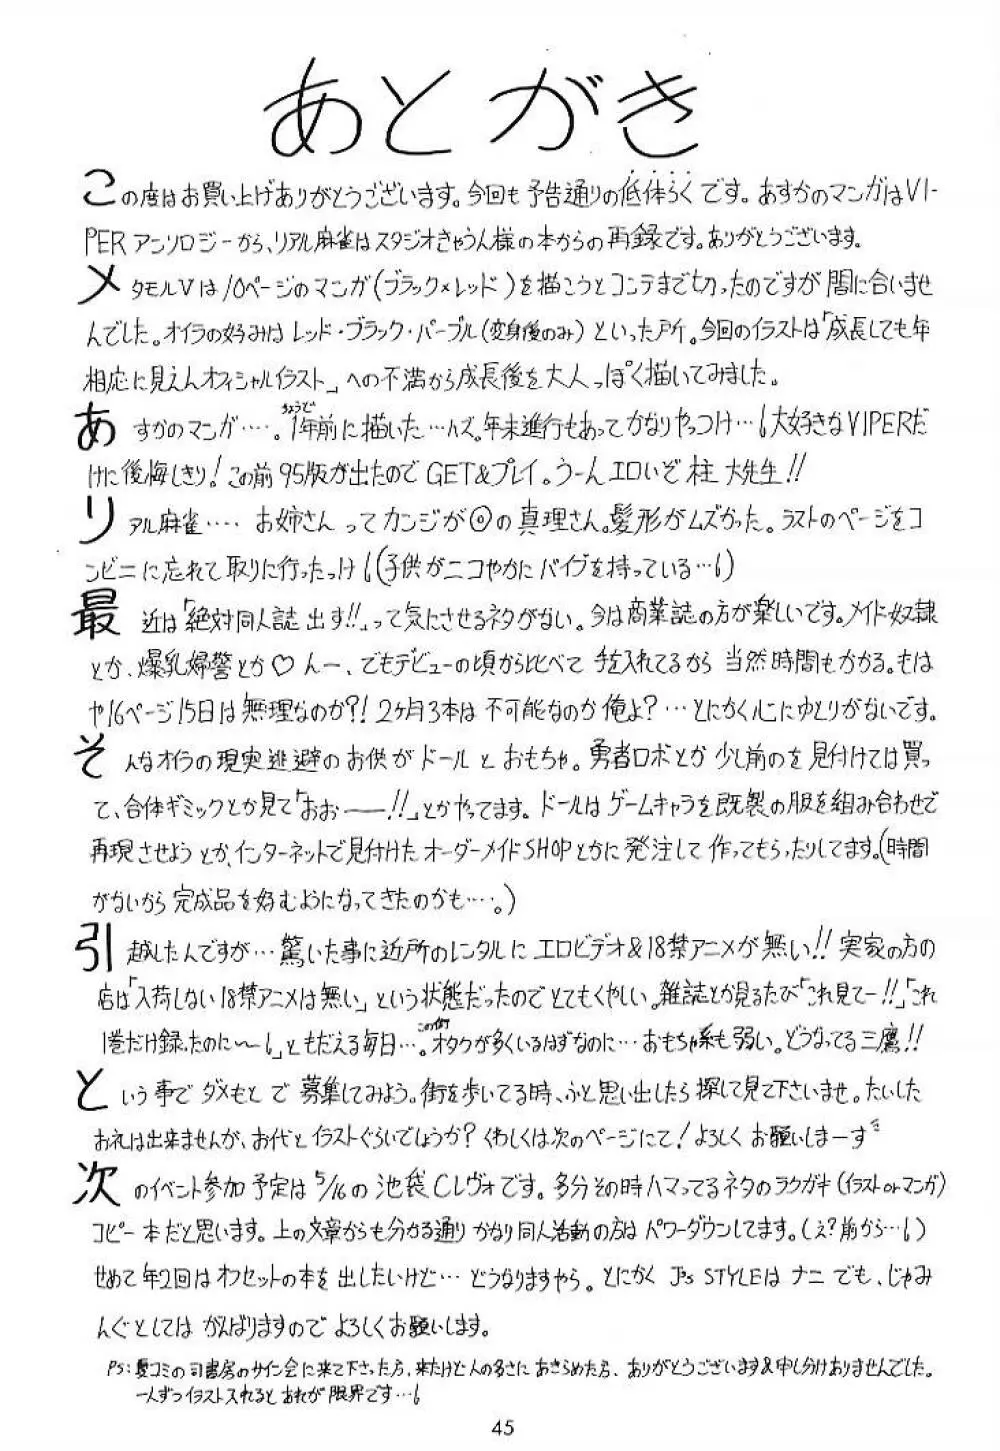 あとがき
この度はお買い上げありがとうございます。今回も予告通りの低体らくです。あすかのマンガはVI-
PERアンソロジーから、リアル麻雀はスタジオきゃうん様の本からの再録です。ありがとうございます。
メタモルVは10ページのマンガ(ブラック×レッド)を描こうとコンテまで切ったのですが間に合いませ
んでした。オイラの好みはレッド・ブラック・パープル(変身後のみ)といった所。今回のイラストは「成長しても年
相応に見えんオフィシャルイラスト」への不満から成長後を大人っぽく描いてみました。
あすかのマンガ‥‥。ちょうど1年前に描いた…ハズ。年末進行もあってかなりやっつけ…大好きなVIPERだ
けに後悔しきり!この前95版が出たのでGET&プレイ。うーんエロいぞ柱大先生!!
リアル麻雀‥‥お姉さんってカンジが◎の真理さん。髪形がムズかった。ラストのページをコ
ンビニに忘れて取りに行ったっけ(子供がニコやかにバイブを持っている…)
最近は「絶対同人誌出す!!」って気にさせるネタがない。今は商業誌の方が楽しいです。メイド奴隷
とか、爆乳婦警とか♡んー、でもデビューの頃から比べて手を入れてるから当然時間もかかる。もは
や16ページ15日は無理なのか?!2ヶ月3本は不可能なのか俺よ?…とにかく心にゆとりがないです。
そんなオイラの現実逃避のお供がドールとおもちゃ。勇者ロボとか少し前のを見付けては買っ
て、合体ギミックとか見て「おお――!!」とかやってます。ドールはゲームキャラを既製の服を組み合わせで
再現させようとか、インターネットで見付けたオーダーメイドSHOPとかに発注して作ってもらったりしてます。(時間
がないから完成品を好むようになってきたのかも…。)
引越したんですが…驚いた事に近所のレンタルにエロビデオ&18禁アニメが無い!!実家の方の
店は「入荷しない18禁アニメは無い」という状態だったのでとてもくやしい。雑誌とか見るたび「これ見てー!!」「これ
1巻だけ録ったのに〜」ともだえる毎日…。この街オタクが多くいるはずなのに…おもちゃ系も弱い。どうなってる三鷹!!
という事でダメもとで募集してみよう。街を歩いてる時、ふと思い出したら探して見て下さいませ。たいした
お礼は出来ませんが、お代とイラストぐらいでしょうか?くわしくは次のページにて!よろしくお願いしまーす
次のイベント参加予定は5/16の池袋Cレヴォです。多分その時ハマってるネタのラクガキ(イラストorマンガ)
コピー本だと思います。上の文章からも分かる通りかなり同人活動の方はパワーダウンしてます。(え?前から…)
せめて年2回はオフセットの本を出したいけど…どうなりますやら。とにかくJ's STYLEはナニでも、じゃみ
んぐとしてはがんばりますのでよろしくお願いします。
PS:夏コミの司書房のサイン会に来て下さった方、来たけど人の多さにあきらめた方、ありがとうございます&申し分けありませんでした。
一人ずつイラスト入れるとあれが限界です…
45